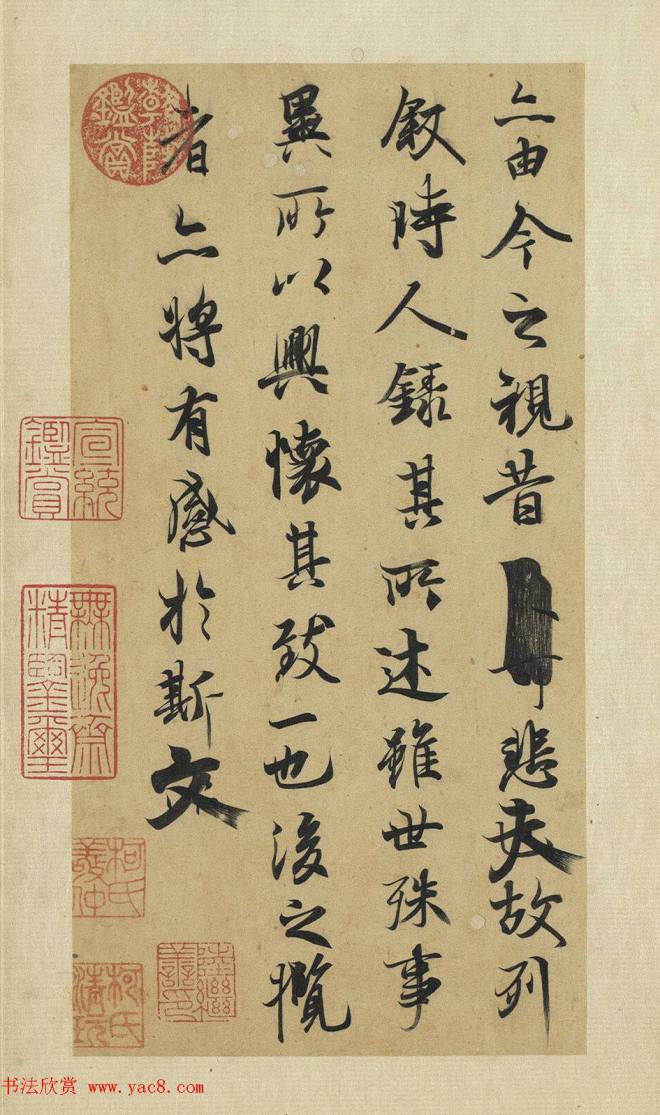 亦由今之視昔悲夫故列
敘時人錄其所述雖世殊事
異所以興懷其致一也後之攬
者亦將有感於斯文
宣統鑑賞
無逸齋精鑒璽
柯氏敬仲
柯氏清玩
书法欣赏 www.yac8.com